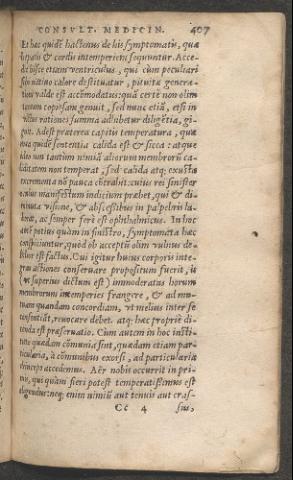 CONSVLT. MEDICIN. 407
Et hæc quidē hactenus de his symptomatis, quæ
hepatis & cordis intemperiem sequuntur. Acce-
dit istic etiam ventriculus, qui cùm peculiari
suo natiuo calore destituatur, pituitæ genera-
tioni valde est accōmodatus: quā certè non olim
tantum copiosam genuit, sed nunc etiā, etsi in
victus ratione summa adhibetur diligētia, gi-
gnit. Adest præterea capitis temperatura, quæ
mea quidē sententia calida est & sicca: atque
ideo non tantùm nimiā aliorum membrorū ca-
liditatem non temperat, sed calida atq; exusta
excrementa nō pauca cōtrahit. cuius rei sinister
oculus manifestum indicium præbet, qui & di-
minuta visione, & abscessibus in palpebris la-
borat, ac semper ferè est ophthalmicus. In hoc
autē potius quàm in sinistro, symptomata hæc
conspiciuntur, quòd ob acceptū olim vulnus de-
bilior est factus. Cui igitur huius corporis inte-
gras actiones conseruare propositum fuerit, is
(vt superius dictum est) immoderatas horum
membrorum intemperies frangere, & ad mu-
tuam quandam concordiam, vt melius inter se
consentiāt, reuocare debet. atq; hæc propriè di-
cenda est præseruatio. Cùm autem in hoc insti-
tuto quædam cōmunia sint, quædam etiam par-
ticularia, à cōmunibus exorsi, ad particularia
deinceps accedemus. Aër nobis occurrit in pri-
mis, qui quàm fieri potest temperatissimus est
eligendus: neq; enim nimiū aut tenuis aut cras-
Cc 4 sus,